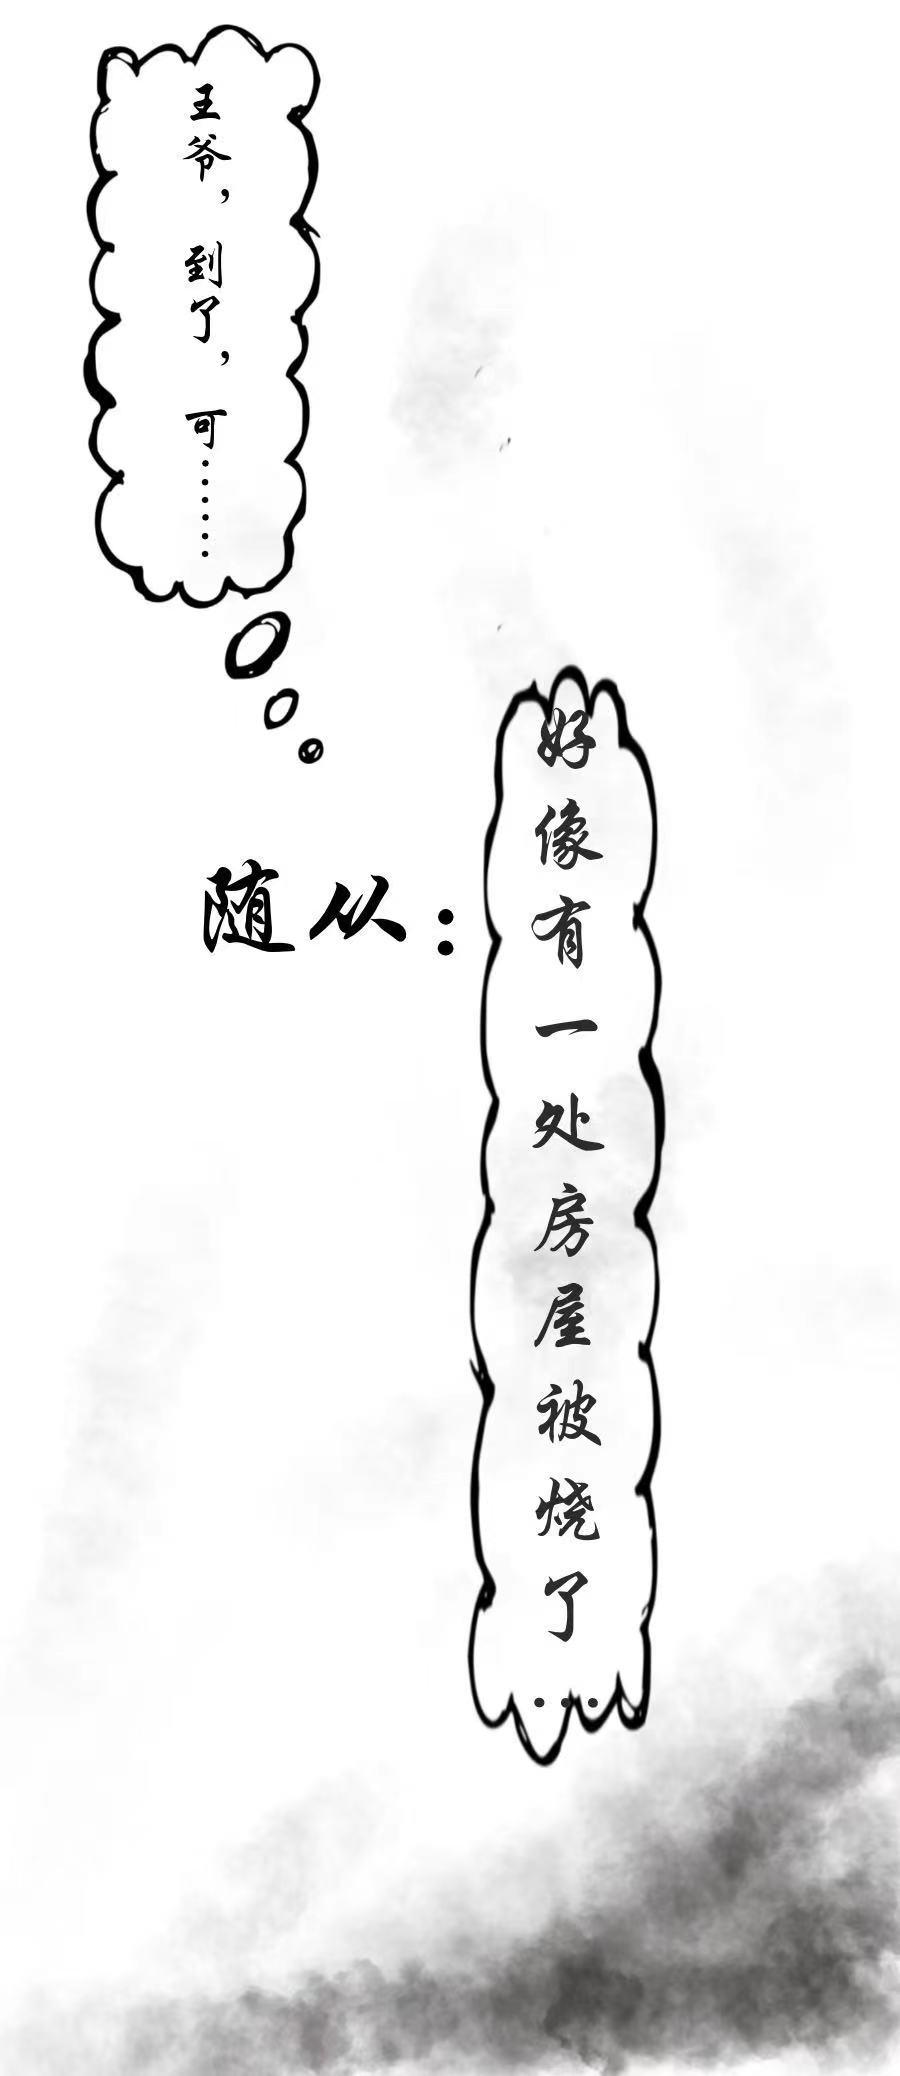 王爷，到了，可……
随从：
好像有一处房屋被烧了
...